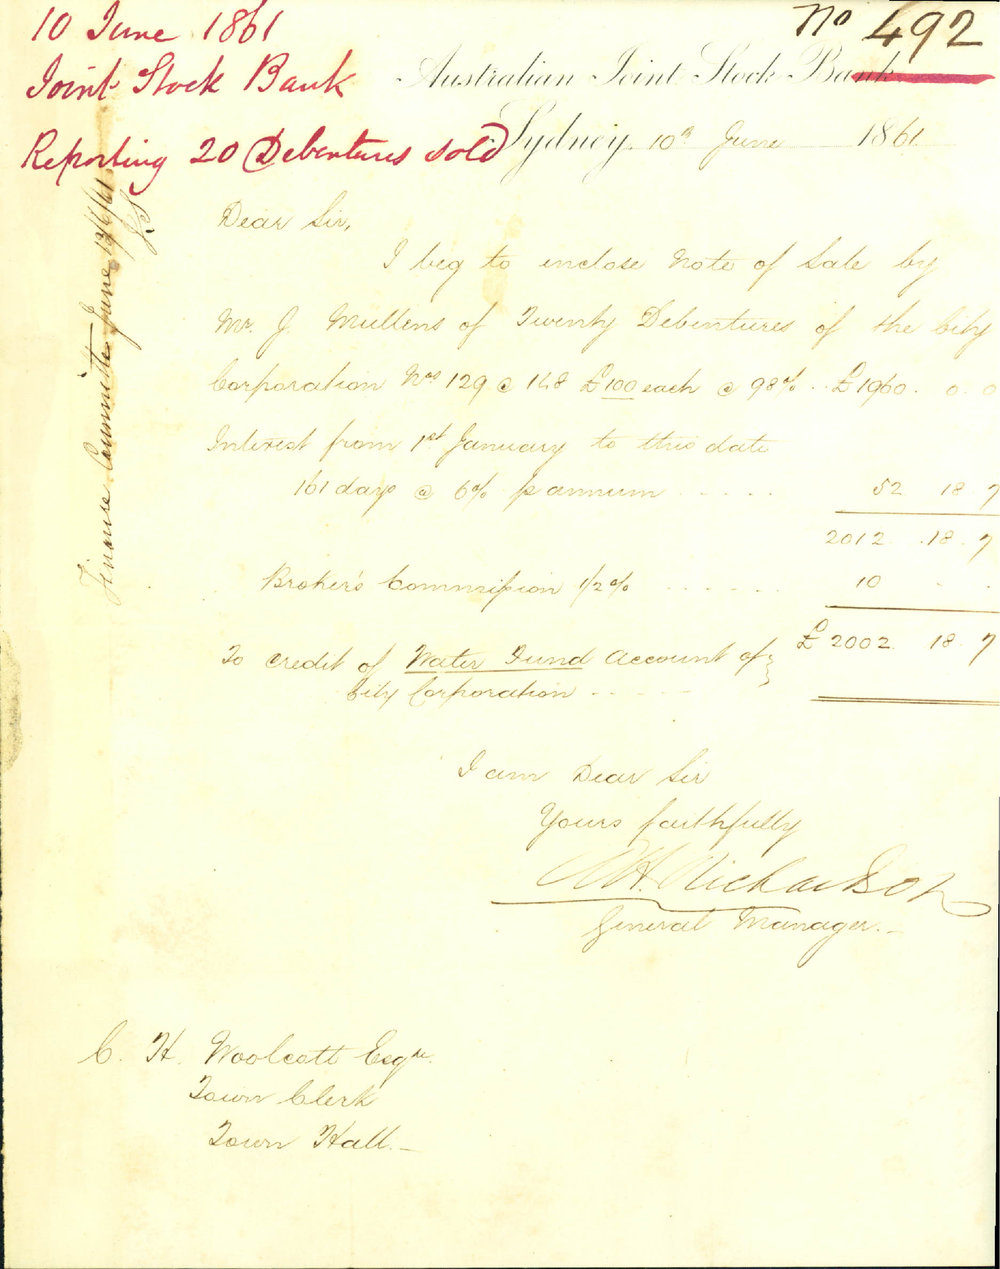 10 June 1861
Joint Stock Bank
Reporting 20 Debentures sold
No 492
Australian Joint Stock Bank
Sydney 10th June 1861
Finance Committee June 13/6/61
Dear Sir,
I beg to inclose Note of Sale by
Mr. J. Mullens of Twenty Debentures of the City
Corporation Nos 129 @ 148 £100 each @ 98% .. £1960. 0. 0
Interest from 1st January to this date
161 days @ 6% p annum ..... 52 18 7
2012 .18. 7
Broker's Commission 1/2% ...... 10 - -
To credit of Water Fund Account of } £2002 18 7
City Corporation .....
I am Dear Sir
Yours faithfully
A H. Richardson
General Manager.-
C. H. Woolcott Esqre.
Town Clerk
Town Hall.-